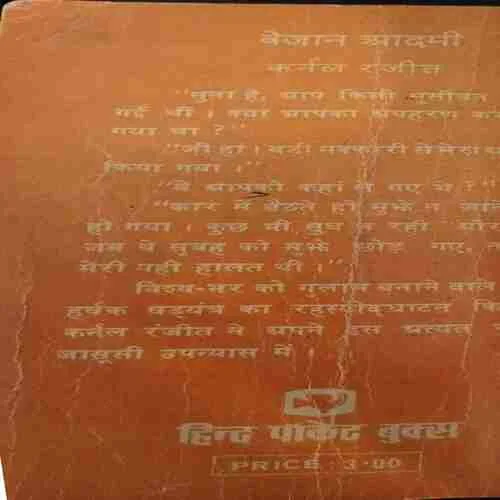 बेजान आदमी
कर्नल रंजीत
"सुना है, आप किसी मुसीबत
गई थीं । क्या आपका अपहरण कर
गया था ?"
"जी हां । बड़ी मक्कारी से मेरा
किया गया ।"
"वे आपको कहां ले गए थे ?"
"कार में बैठते ही मुझे न जाने
हो गया । कुछ भी सुध न रही । और
जब वे सुबह को मुझे छोड़ गए,
मेरी यही हालत थी ।"
विश्व-भर को गुलाम बनाने वाले
हर्षक षड्यंत्र का रहस्योद्घाटन
कर्नल रंजीत ने अपने इस अत्यंत
जासूसी उपन्यास में ।
हिन्द पॉकेट बुक्स
PRICE : 3·00